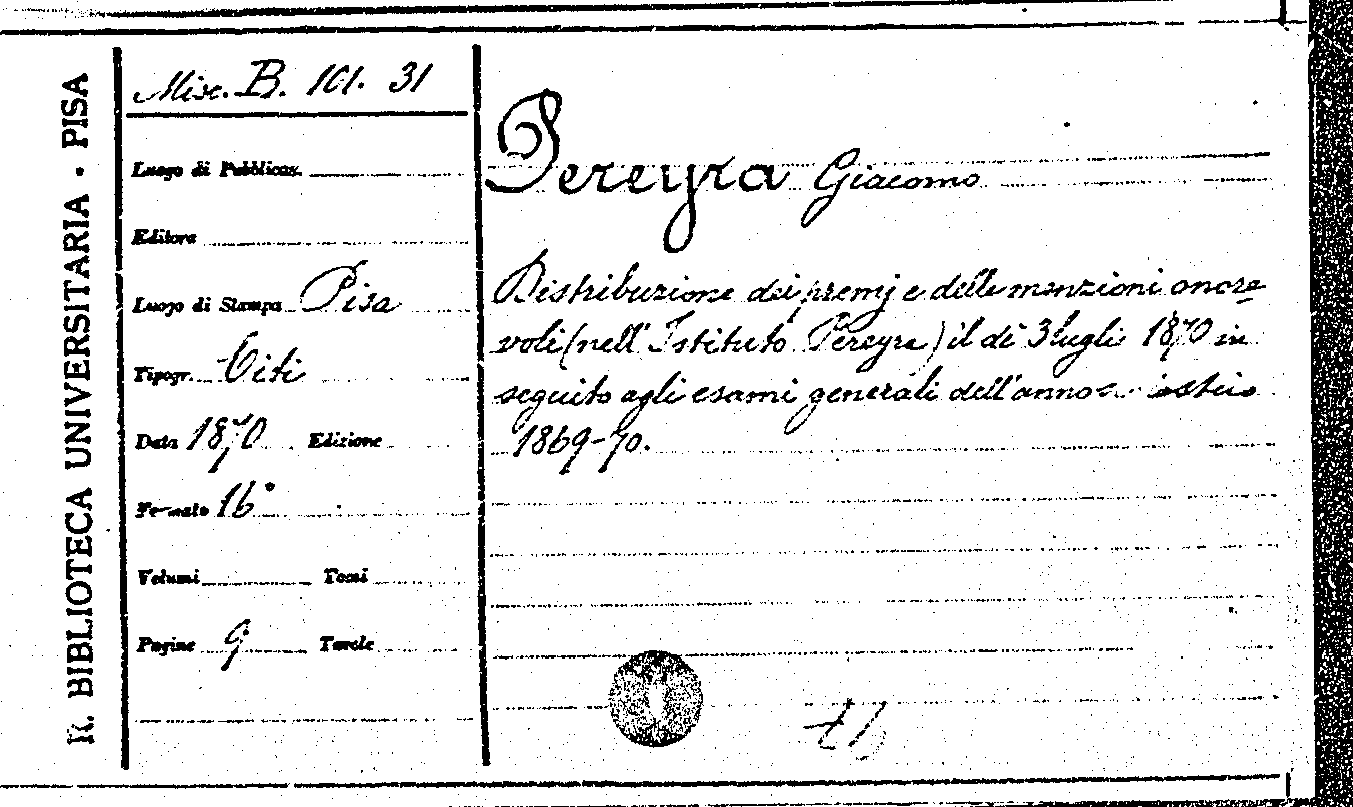 R. BIBLIOTECA UNIVERSITARIA · PISA
Misc. B. 101. 31
Luogo di Pubblicaz.
Editore
Luogo di Stampa Pisa
Tipogr. Citi
Data 1870 Edizione
Formato 16°
Volumi Tomi
Pagine 9 Tavole
Pereyra Giacomo
Distribuzione dei premj e delle menzioni onore
voli (nell'Istituto Pereyra) il dì 3 lugli 1870 in
seguito agli esami generali dell'anno
1869-70.